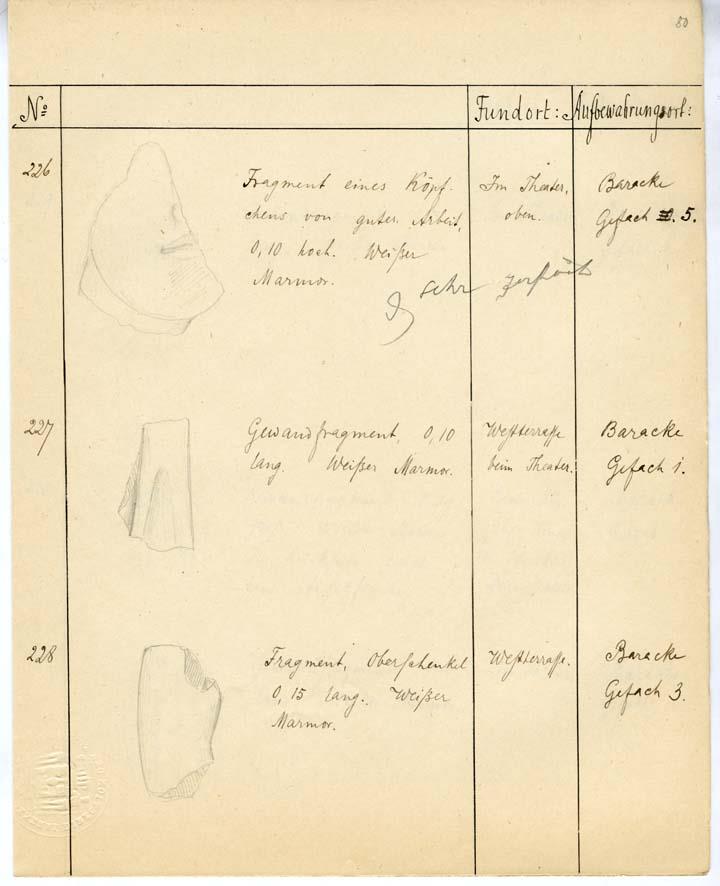 80
No Fundort: Aufbewahrungsort:
226
Fragment eines Köpf-
chens von guter Arbeit,
0,10 hoch. Weißer
Marmor.
Im Theater,
oben.
Baracke
Gefach 5.
sehr zerstört
227
Gewandfragment, 0,10
lang. Weißer Marmor.
Westterrasse
beim Theater.
Baracke
Gefach 1.
228
Fragment, Oberschenkel
0,15 lang. Weißer
Marmor.
Westterrasse.
Baracke
Gefach 3.